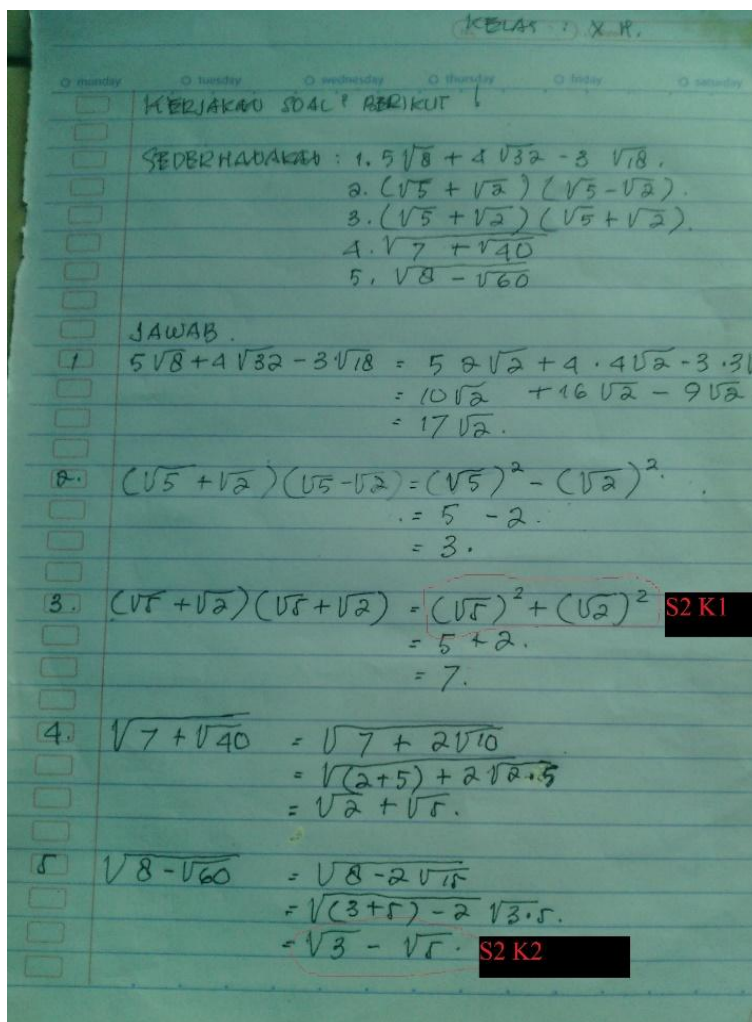 KELAS : X H.
monday tuesday wednesday thursday friday saturday
KERJAKAN SOAL² BERIKUT !
SEDERHANAKAN : 1. 5√8 + 4√32 - 3√18.
2. (√5 + √2)(√5 - √2).
3. (√5 + √2)(√5 + √2).
4. √(7 + √40)
5. √(8 - √60)
JAWAB.
1 5√8 + 4√32 - 3√18 = 5 2√2 + 4 · 4√2 - 3 · 3√
= 10√2 + 16√2 - 9√2
= 17√2.
2. (√5 + √2)(√5 - √2) = (√5)² - (√2)².
= 5 - 2.
= 3.
3. (√5 + √2)(√5 + √2) = (√5)² + (√2)² S2 K1
= 5 + 2.
= 7.
4. √(7 + √40) = √(7 + 2√10)
= √((2+5) + 2√2·5)
= √2 + √5.
5 √(8 - √60) = √(8 - 2√15)
= √((3+5) - 2 √3·5).
= √3 - √5. S2 K2